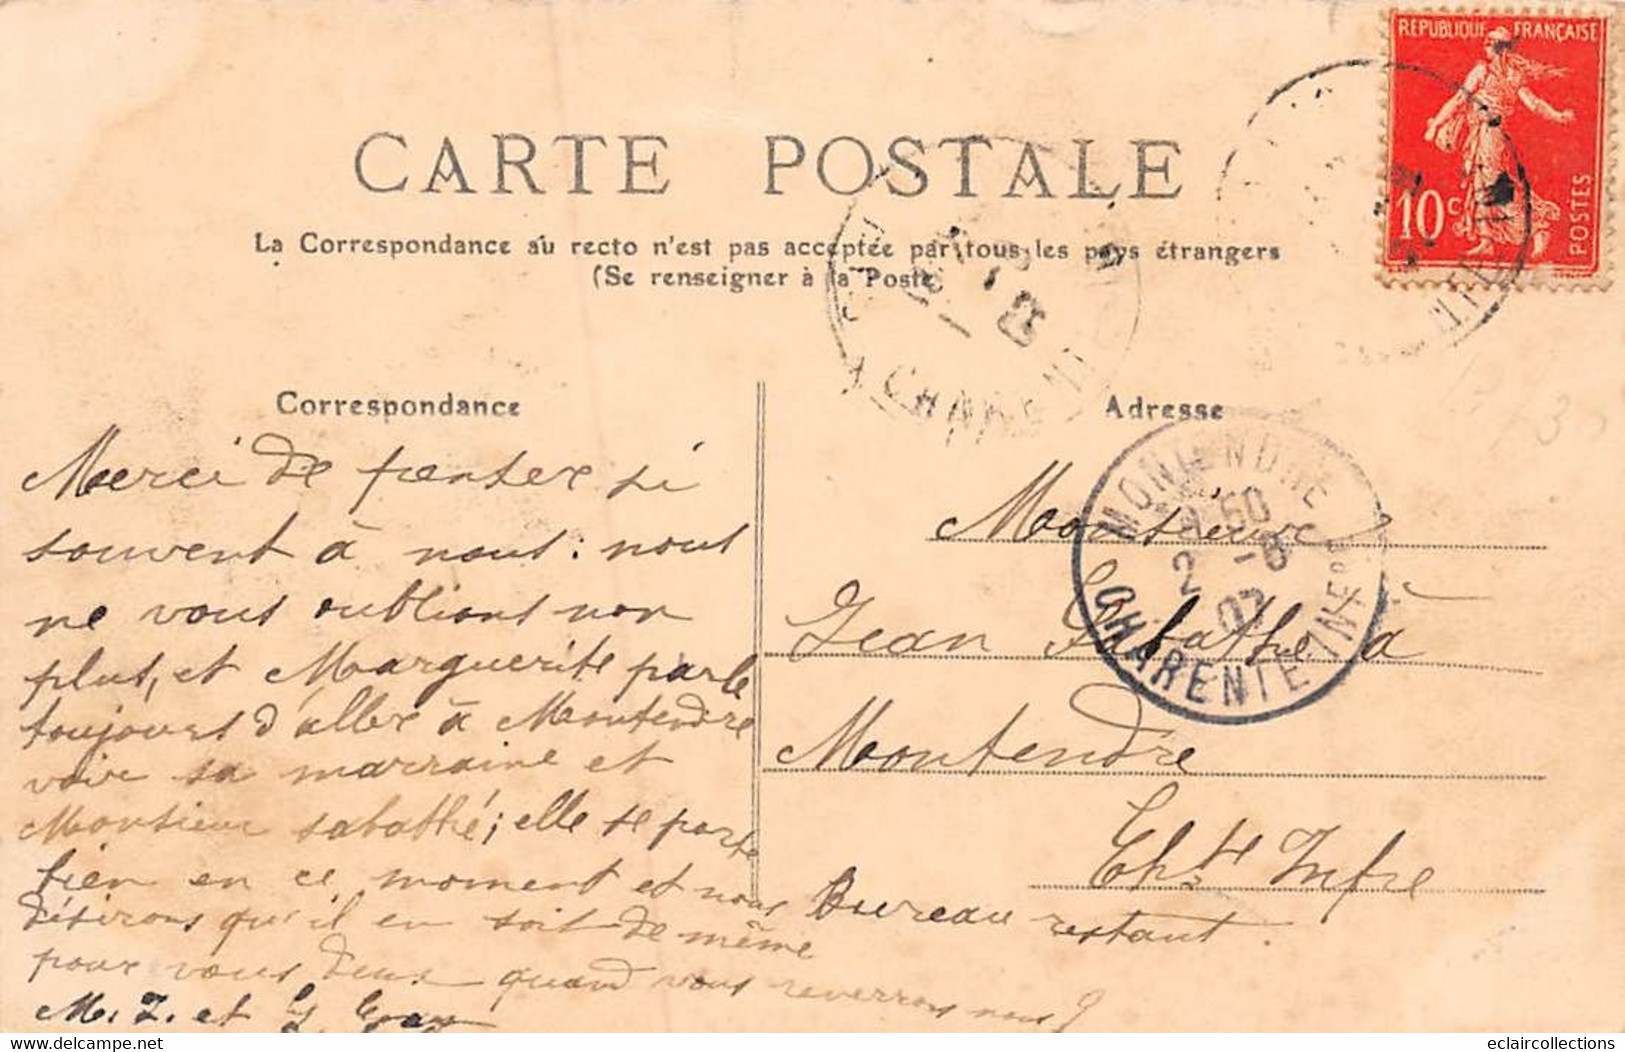 REPUBLIQUE FRANÇAISE
10c
POSTES
CARTE POSTALE
La Correspondance au recto n'est pas acceptée par tous les pays étrangers
(Se renseigner à la Poste
Correspondance
Merci de penser si
souvent à nous: nous
ne vous oublions non
plus, et Marguerite parle
toujours d'aller à Montendre
voir sa marraine et
Monsieur Sabathé; elle se porte
bien en ce moment et nous
désirons qu'il en soit de même
pour vous deux quand vous reverrons nous?
M. Z. et G.
Adresse
Monsieur
Jean Sabathé à
Montendre
Chte Infre
Bureau restant.
MONTENDRE
2 -8
07
CHARENTE INFRE
eclaircollections